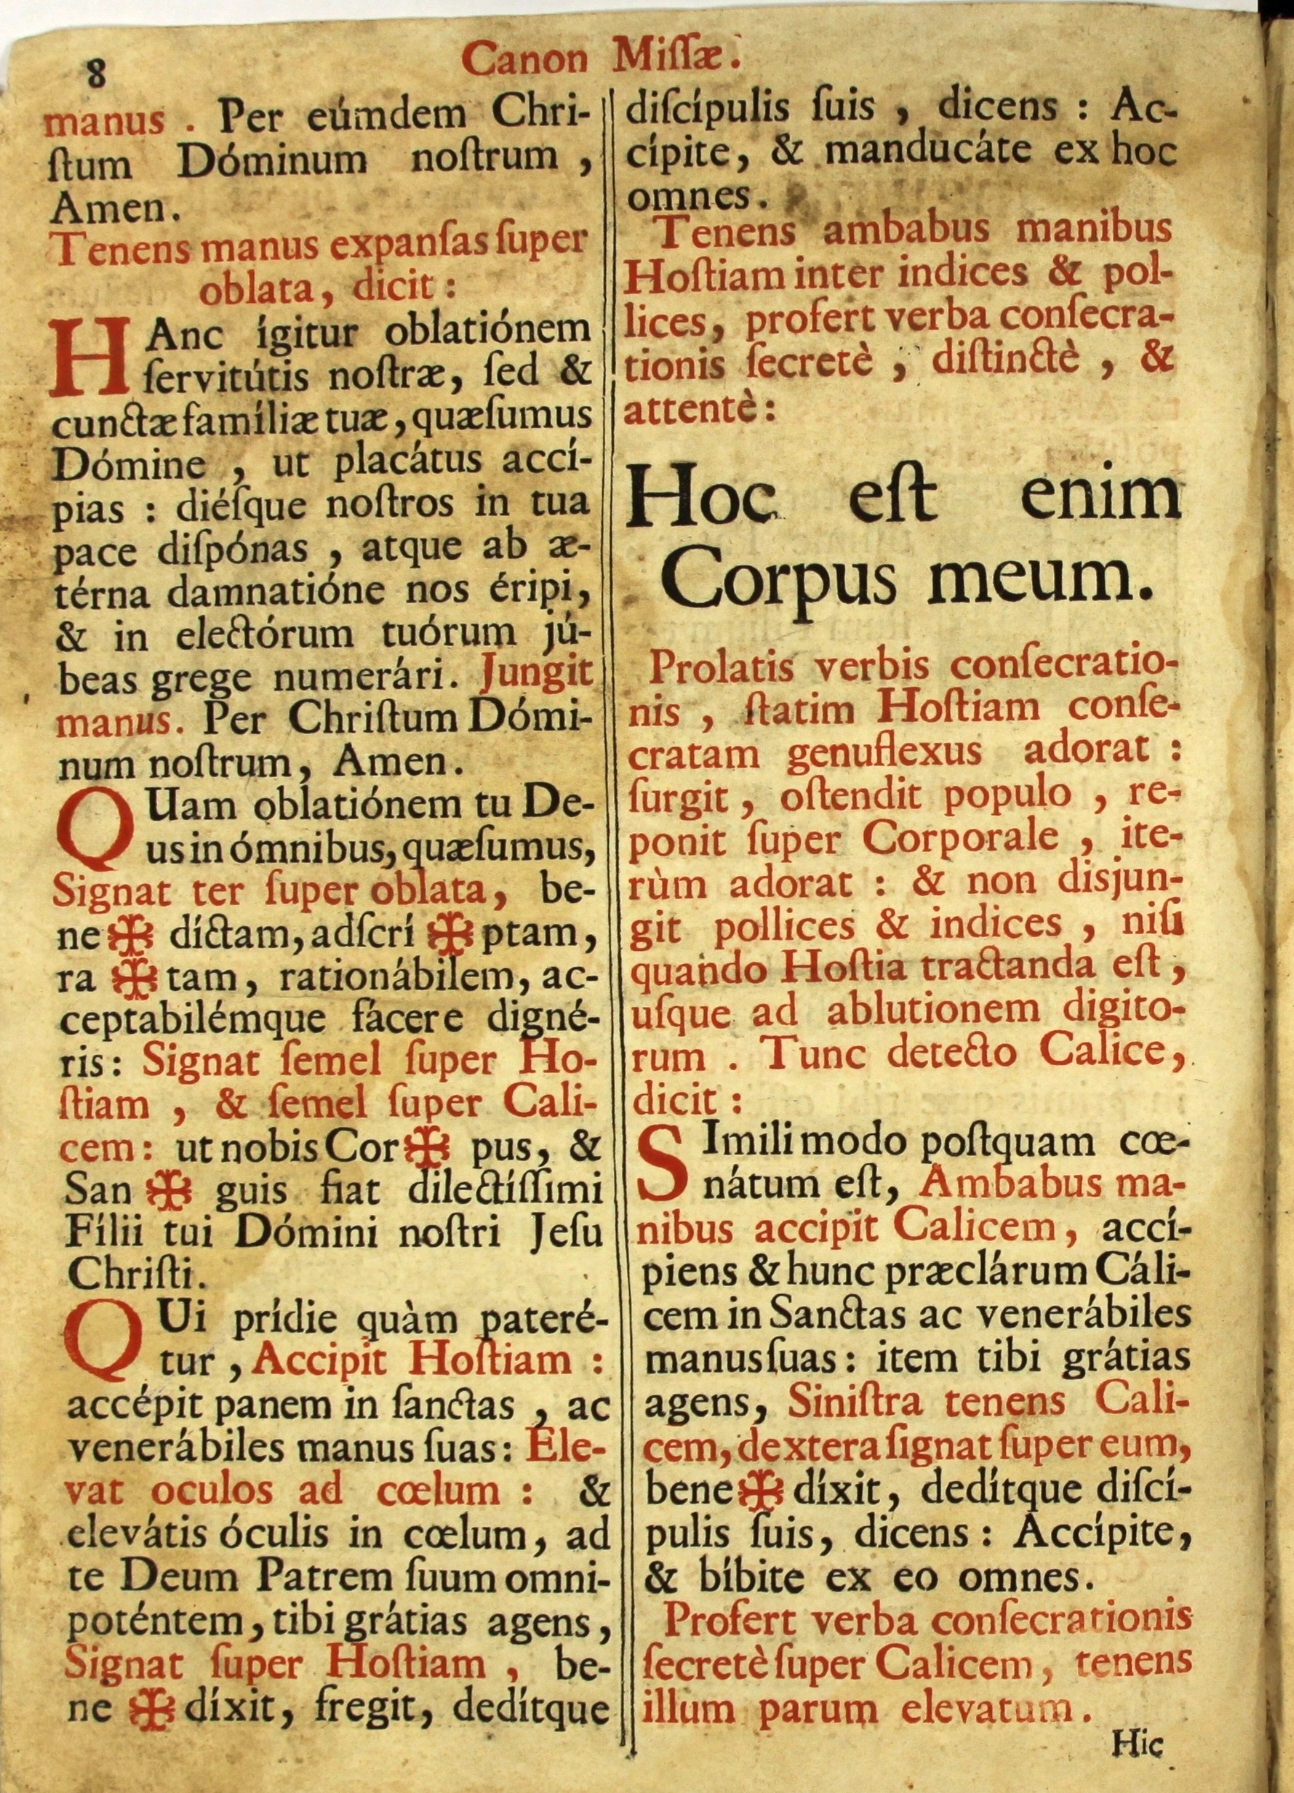 8
Canon Miſſæ.
manus . Per eúmdem Chri-
ſtum Dóminum noſtrum ,
Amen.
Tenens manus expanſas ſuper
oblata, dicit :
HAnc ígitur oblatiónem
ſervitútis noſtræ, ſed &
cunctæ famíliæ tuæ, quæſumus
Dómine , ut placátus accí-
pias : diéſque noſtros in tua
pace diſpónas , atque ab æ-
térna damnatióne nos éripi,
& in electórum tuórum jú-
beas grege numerári. Jungit
manus. Per Chriſtum Dómi-
num noſtrum, Amen.
QUam oblatiónem tu De-
us in ómnibus, quæſumus,
Signat ter ſuper oblata, be-
ne ✠ díctam, adſcrí ✠ ptam,
ra ✠ tam, rationábilem, ac-
ceptabilémque fácere digné-
ris: Signat ſemel ſuper Ho-
ſtiam , & ſemel ſuper Cali-
cem: ut nobis Cor ✠ pus, &
San ✠ guis fiat dilectíſſimi
Fílii tui Dómini noſtri Jeſu
Chriſti.
QUi prídie quàm pateré-
tur , Accipit Hoſtiam :
accépit panem in ſanctas , ac
venerábiles manus ſuas: Ele-
vat oculos ad cœlum : &
elevátis óculis in cœlum, ad
te Deum Patrem ſuum omni-
poténtem, tibi grátias agens,
Signat ſuper Hoſtiam , be-
ne ✠ díxit, fregit, dedítque
diſcípulis ſuis , dicens : Ac-
cípite, & manducáte ex hoc
omnes.
Tenens ambabus manibus
Hoſtiam inter indices & pol-
lices, profert verba conſecra-
tionis ſecretè , diſtinctè , &
attentè:
Hoc eſt enim
Corpus meum.
Prolatis verbis conſecratio-
nis , ſtatim Hoſtiam conſe-
cratam genuflexus adorat :
ſurgit, oſtendit populo , re-
ponit ſuper Corporale , ite-
rùm adorat : & non disjun-
git pollices & indices , niſi
quando Hoſtia tractanda eſt,
uſque ad ablutionem digito-
rum . Tunc detecto Calice,
dicit :
SImili modo poſtquam cœ-
nátum eſt, Ambabus ma-
nibus accipit Calicem, accí-
piens & hunc præclárum Cáli-
cem in Sanctas ac venerábiles
manus ſuas: item tibi grátias
agens, Siniſtra tenens Cali-
cem, dextera ſignat ſuper eum,
bene ✠ díxit, dedítque diſcí-
pulis ſuis, dicens : Accípite,
& bíbite ex eo omnes.
Profert verba conſecrationis
ſecretè ſuper Calicem, tenens
illum parum elevatum.
Hic